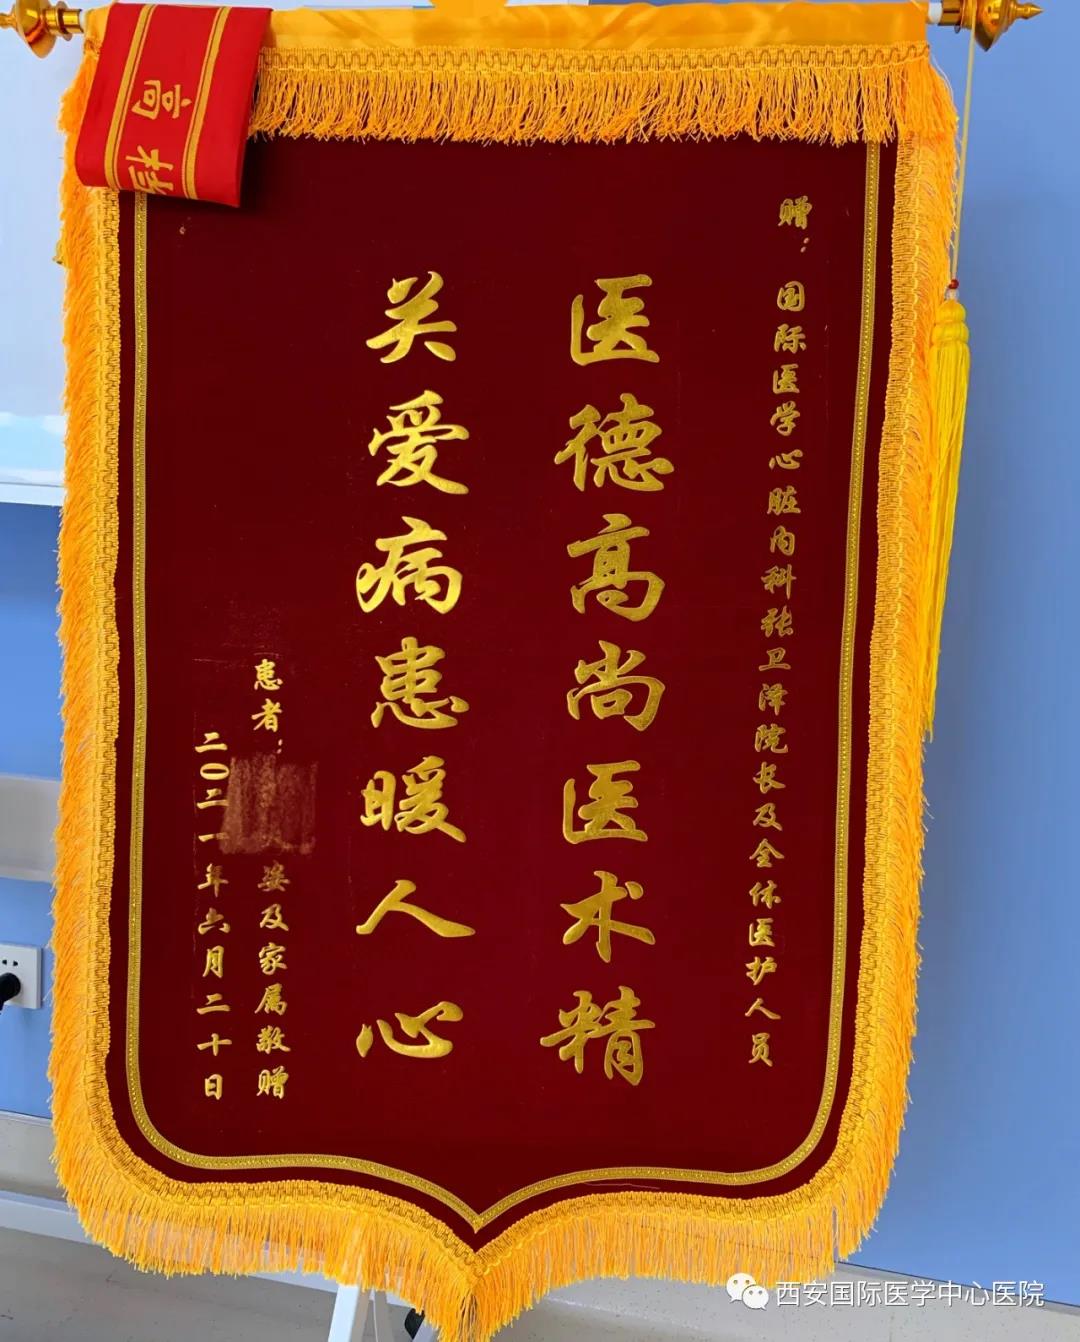 赠：国际医学心脏内科张卫泽院长及全体医护人员
医德高尚医术精
关爱病患暖人心
患者：
姿及家属敬赠
二〇二一年六月二十日
高档
西安国际医学中心医院